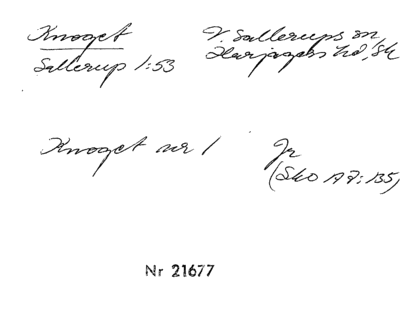 Knoget V. Sallerups sn,
Sallerup 1:53 Harjagers hd, Sk
Knoget nr 1 Jr
(SkO A2:135)
Nr 21677